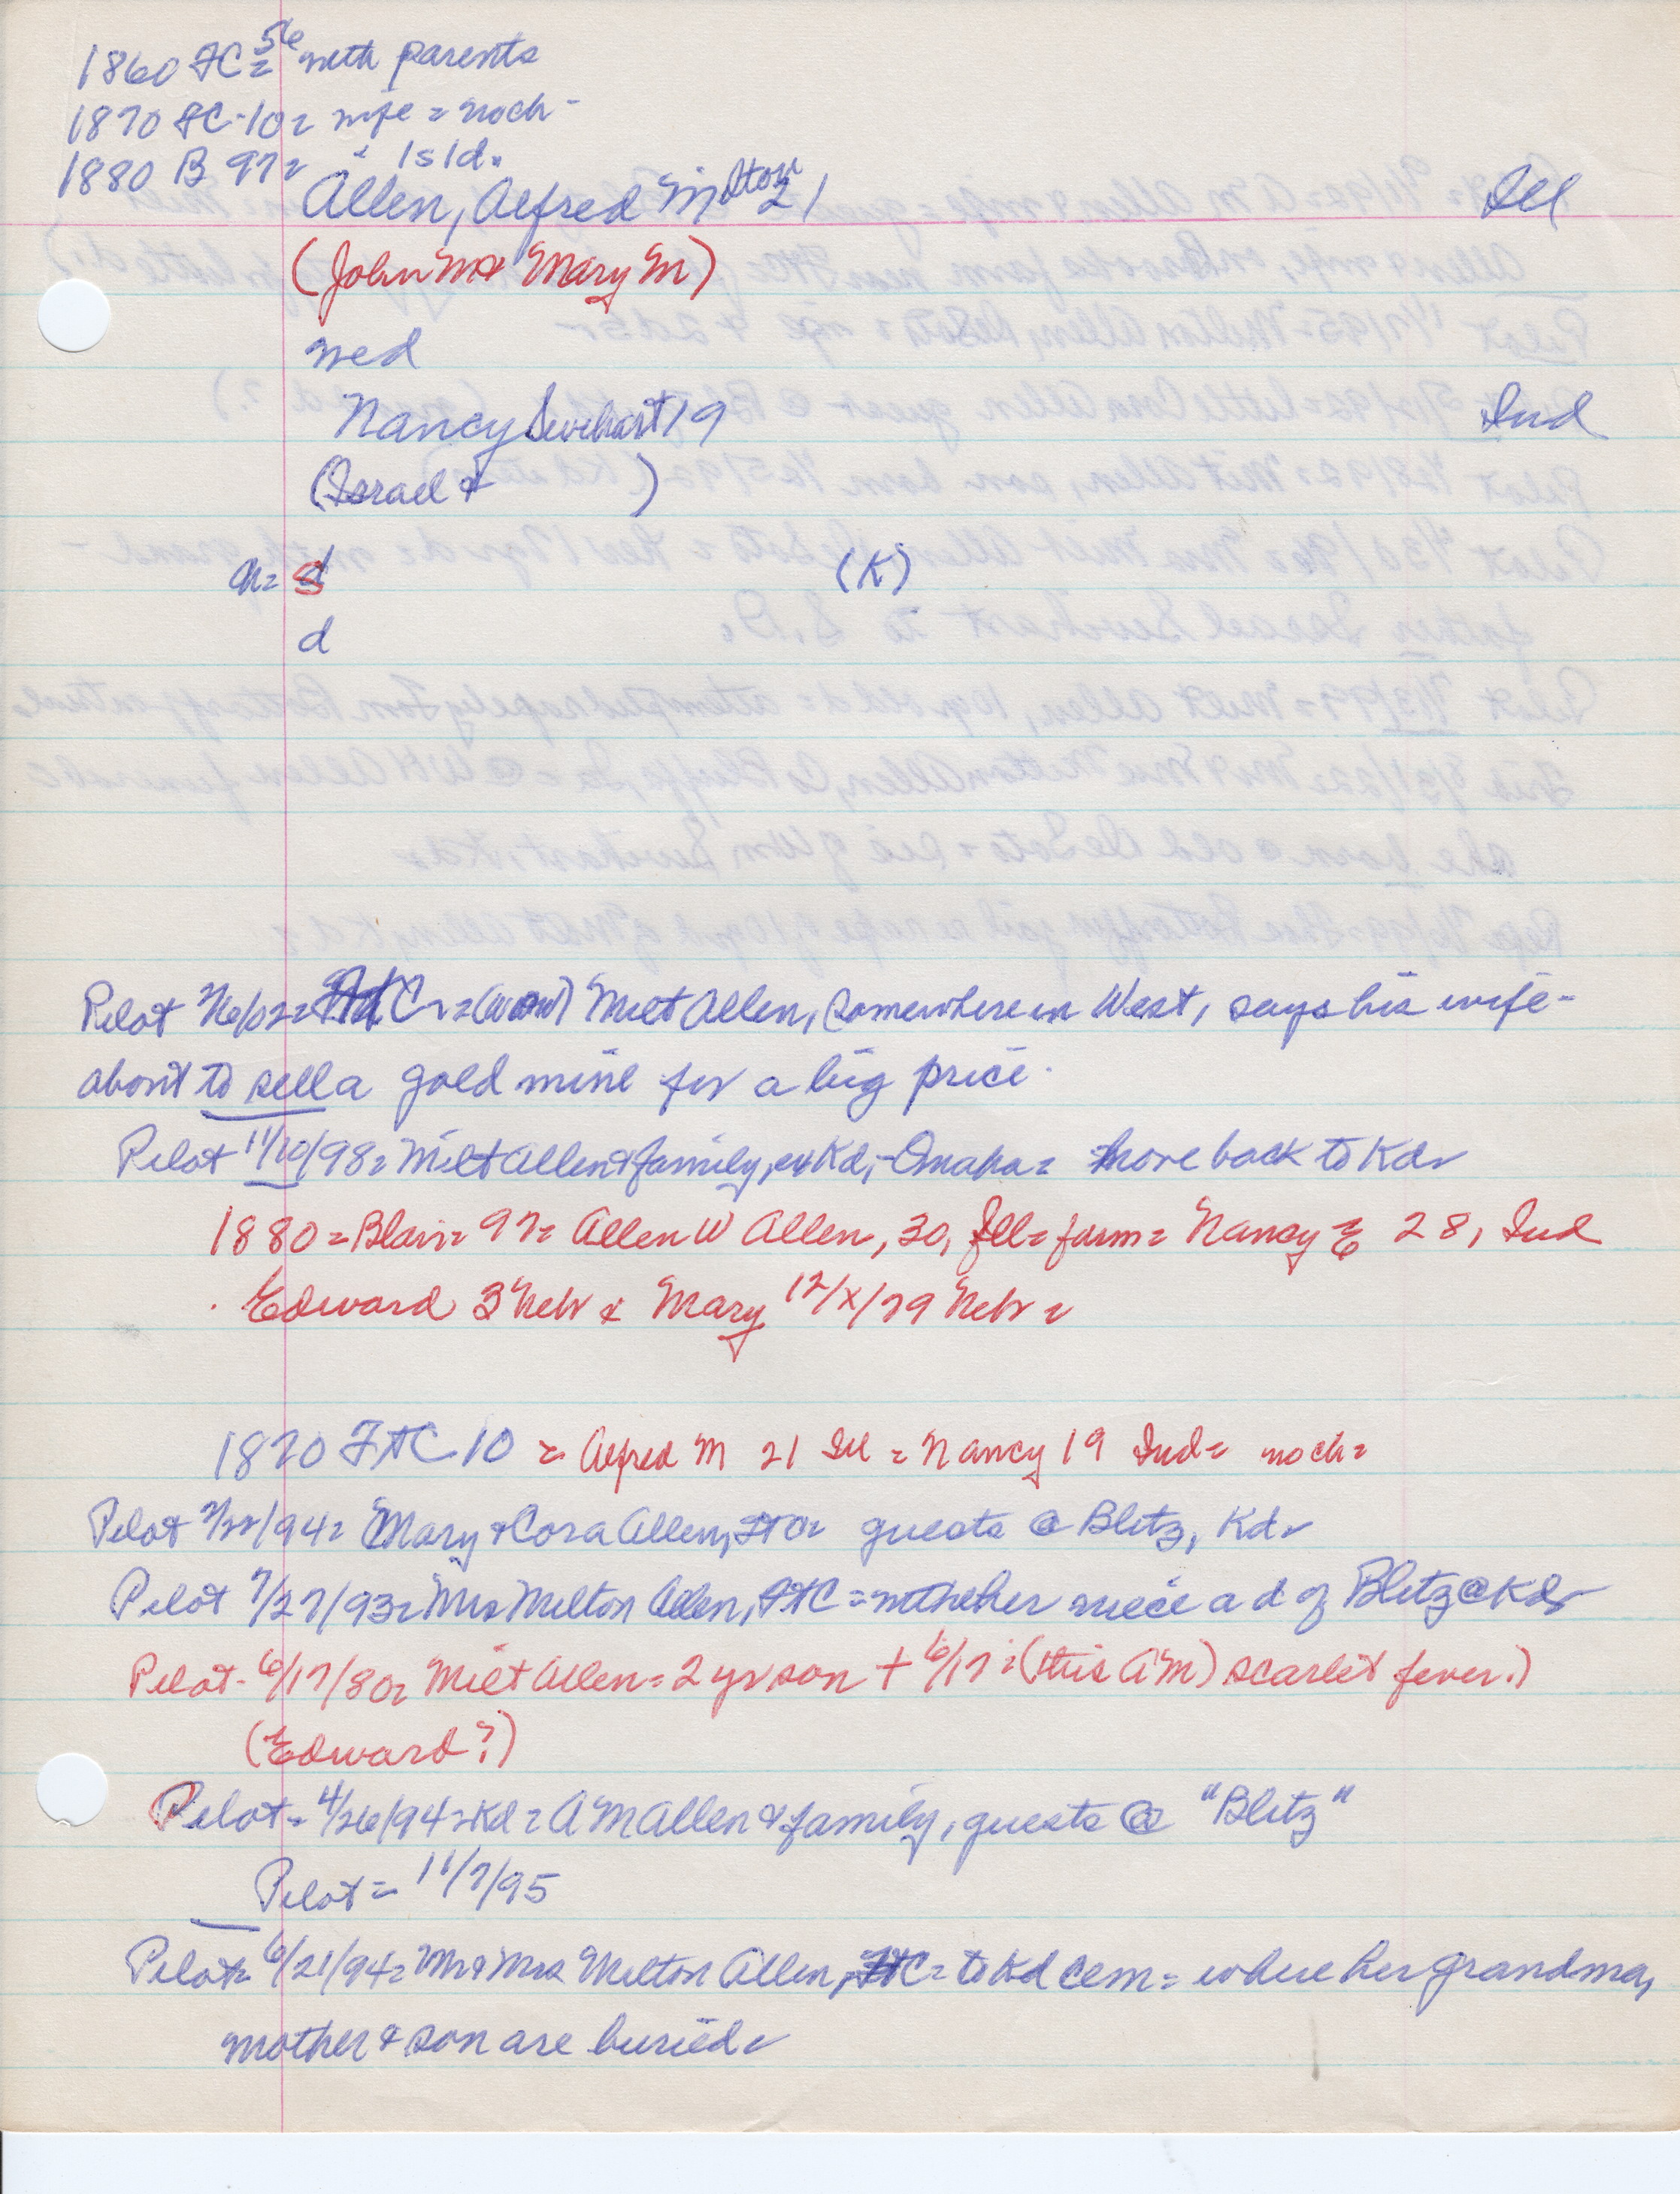 1860 FC 56 = with parents
1870 FC-10 = wife = noch -
1880 B 97 = " 1s 1d.
Allen, Alfred Milton 21 Ill
(John M & Mary M)
wed
Nancy Swihart 19 Ind
(Israel & )
ch= s (K)
d
Pilot = Milt Allen, somewhere in West, says his wife -
about to sell a gold mine for a big price.
Pilot 11/10/98 = Milt Allen & family, ex Kd, - Omaha = move back to Kd
1880 = Blair = 97 = Allen W Allen, 30, Ill = farm = Nancy E 28, Ind
Edward 3 Nebr & Mary 12/x/79 Nebr =
1870 FtC 10 = Alfred M 21 Ill = Nancy 19 Ind = noch =
Pilot /94 = Mary & Cora Allen, guests @ Blitz, Kd
Pilot 7/27/93 = Mrs Milton Allen, FtC = niece a d of Blitz @ Kd
Pilot - 6/17/80 = Milt Allen = 2 yr son + 6/17 = (this AM) scarlet fever.)
(Edward?)
Pilot = 4/26/94 = Kd = A M Allen & family, guests @ "Blitz"
Pilot = 11/7/95
Pilot = 6/21/94 = Mr & Mrs Milton Allen, FtC = to Kd cem = where her grandma,
mother & son are buried